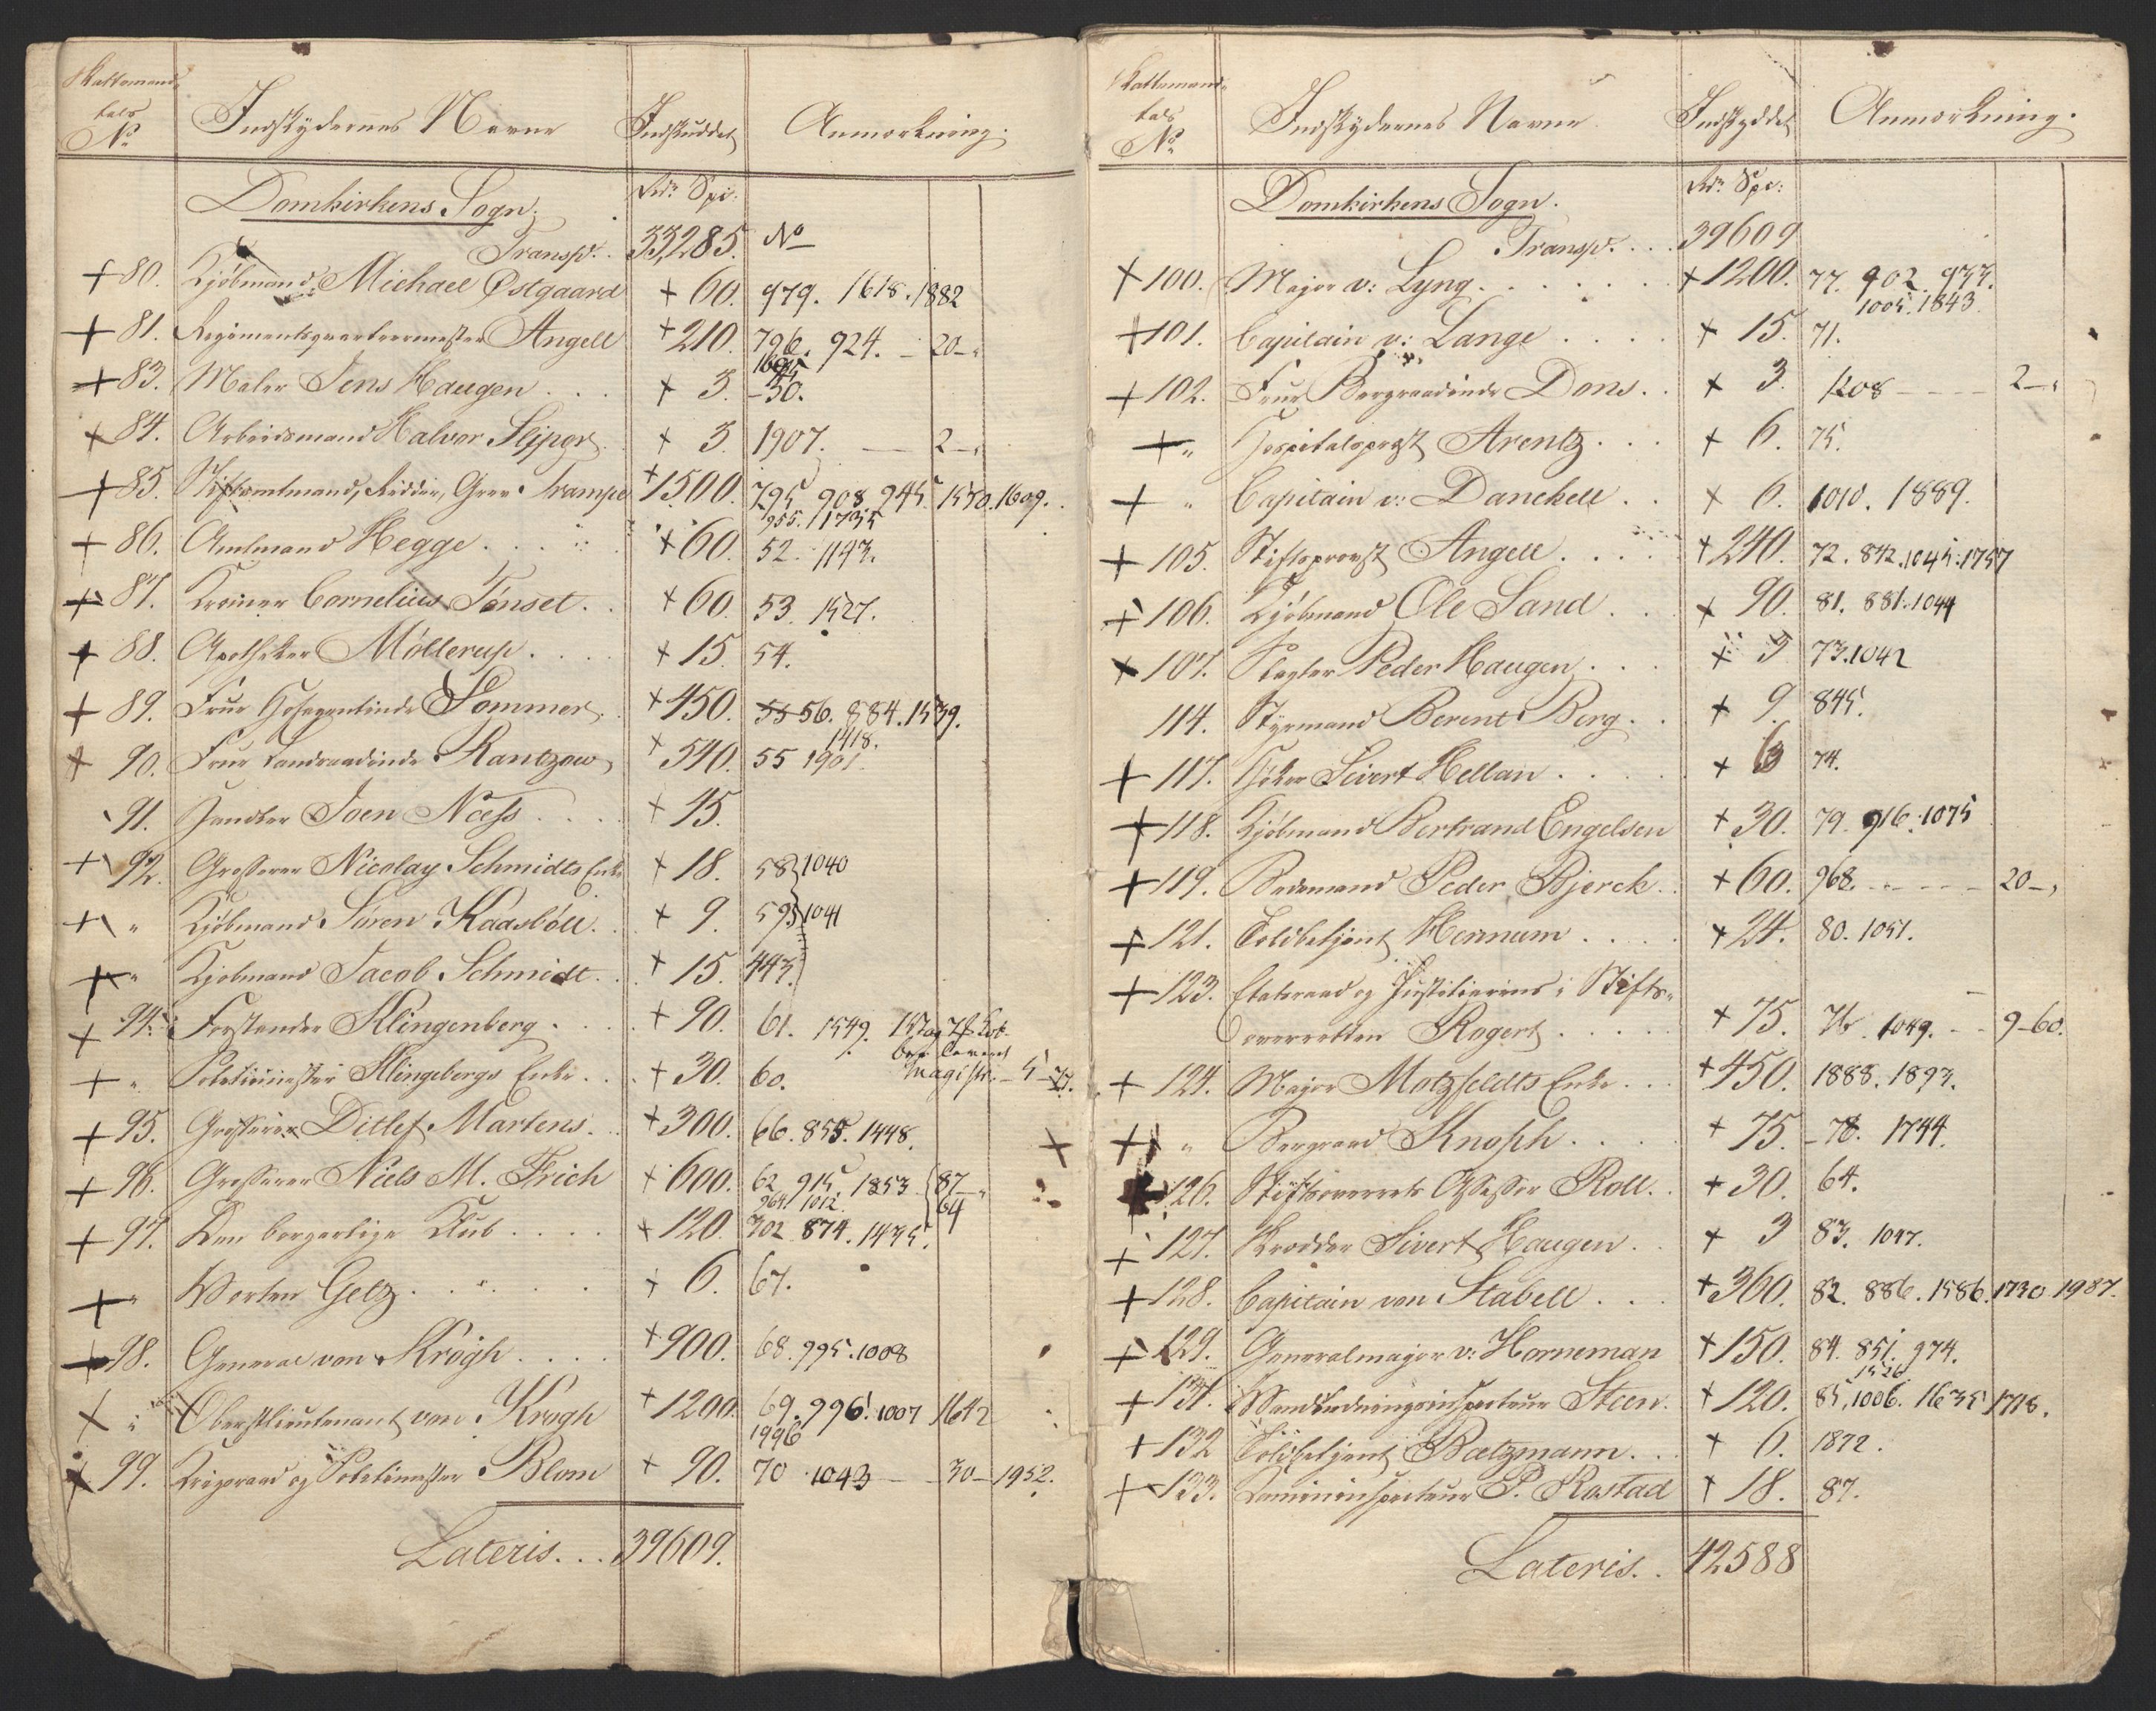 Skattemand-
tals
No
Indskydernes Navne
Indskuddet
Anmærkning.
Domkirkens Sogn.
Rdr. Spe:
Transp. . 33,285. No
+ 80. Kjöbmand Michael Østgaard + 60. 979. 1618. 1882
+ 81. Regimentsqvarteermester Angell + 210. 796. 924. — 20—"
+ 83. Maler Jens Haugen . . . + 3. —50.
+ 84. Arbeidsmand Halvor Slyper + 3. 1907. — 2—"
+ 85. Stiftamtmand, Ridder, Grev Trampe + 1500. 795. 908. 945. 1550. 1609.
955. 1735
+ 86. Amtmand Hegge . . . + 60. 52. 1143.
+ 87. Kræmer Cornelius Tönset . . + 60. 53. 1527.
+ 88. Apotheker Möllerup . . . . + 15. 54.
+ 89. Frue Hofagentinde Sommer . + 450. 55 56. 884. 1539.
1418.
+ 90. Frue Landraadinde Rantzow + 540. 55 1961.
91. Handler Joen Næss . . . . + 15.
+ 92. Grosserer Nicolay Schmidts Enke + 18. 58 } 1040
+ " Kjöbmand Sören Kaasböll . . + 9. 59 } 1041
+ " Kjöbmand Jacob Schmidt . . + 15. 443
+ 94. Forstander Klingenberg . . . + 90. 61. 1549.
+ " Politiemester Klingebergs Enke . . + 30. 60.
+ 95. Grosserer Ditlef Martens . . + 300. 66. 855. 1448.
+ 96. Grosserer Niels M. Frich + 600. 62 915 1853 { 87—"
964. 1012. 64
+ 97. Den borgerlige Klub . . . . + 120. 302. 874. 1435.
+ " Morten Geltz . . . . . + 6. 67.
+ 98. General von Krogh . . . . + 900. 68. 995. 1008
+ " Oberstlieutenant von Krogh + 1200. 69. 996. 1007 1642
1996
+ 99. Krigsraad og Politiemester Blom + 90. 70. 1043 — 30— 1952.
Lateris . . . 39609.
Skattemand-
tals
No
Indskydernes Navne
Indskyddet
Anmærkning.
Domkirkens Sogn.
Rdr. Spe:
Transp. . . . 39609
+ 100. Major v: Lyng . . . . . . + 1200. 77. 902. 933.
1005. 1843.
+ 101. Capitain v: Lange . . . . + 15. 71.
+ 102. Frue Bergraadinde Dons . . + 3. 1208 — — — 2—"
+ " Hospitalsprest Arentz . . . + 6. 75.
+ " Capitain v: Danckell . . + 6. 1010. 1889.
+ 105. Stiftsprovst Angell . . . . + 240. 72. 842. 1045. 1757
+ 106. Kjöbmand Ole Sand . . . + 90. 81. 881. 1044
+ 107. Slagter Peder Haugen . . . + 3 73. 1042
114. Styrmand Berent Berg . . + 9. 845.
+ 117. Höker Sivert Hellan . . . . + 6 74.
+ 118. Kjöbmand Bertrand Engelsen + 30. 79. 916. 1075
+ 119. Bedemand Peder Bjerck . . + 60. 968. — — — 20—,
+ 121. Toldbetjent Hernum . . . . + 24. 80. 1051.
+ 123. Etatsraad og Justitiarius i Stifts-
overretten Rogert . . . . . + 75. 76. 1049. — — 9—60.
+ 124. Major Motzfeldts Enke . . . + 450. 1888. 1893.
+ " Bergraad Knoph . . . . + 75. — 78. 1744.
126. Stiftsoverrets Assessor Roll . . + 30. 64.
+ 127. Skrædder Sivert Haugen . . + 3 83. 1047.
+ 128. Capitain von Stabell . . . + 360. 82. 886. 1586. 1730 1987.
+ 129. Generalmajor v: Horneman + 150. 84. 851. 974.
1526
+ 131. Vandledningsinspecteur Steen. + 120. 85. 1006. 1635 1718.
+ 132 Toldbetjent Baltzmann . . . + 6. 1872.
+ 133. P. Rostad + 18. 87.
Lateris . . 42588